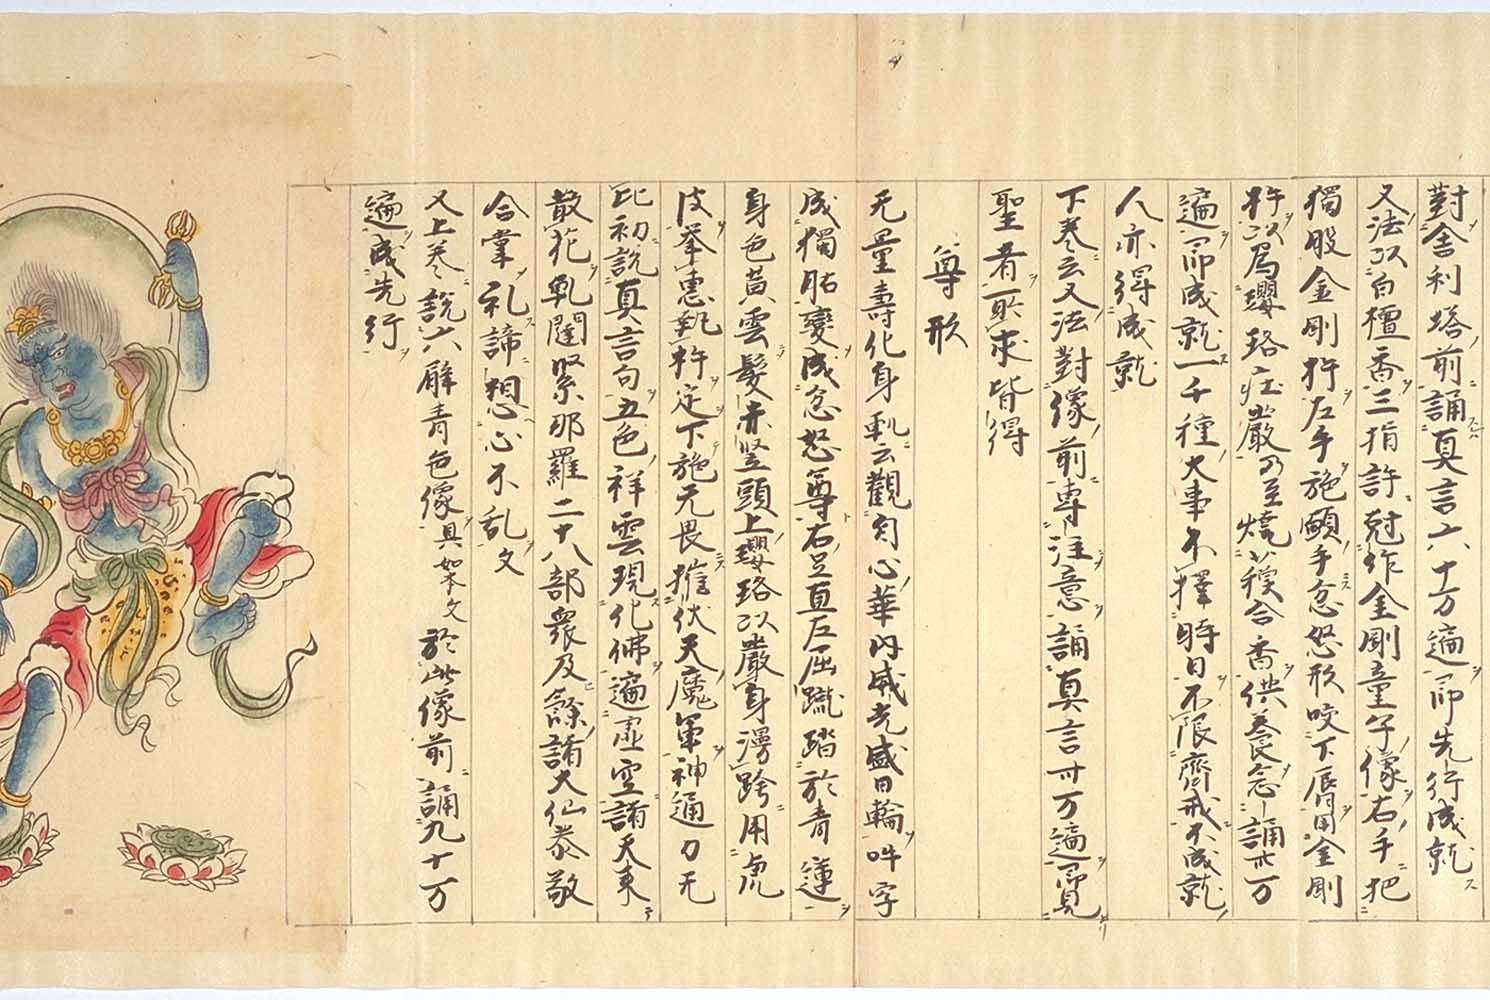 對舍利塔前誦真言六十万遍即先行成就
又法以白檀香三指許剋作金剛童子像右手把
獨股金剛杵左手施願手忿怒形咬下唇用金剛
杵以爲瓔珞莊嚴乃至燒蘓合香供養念誦卅万
遍即成就一千種大事不擇時日不限齋戒不成就
人亦得成就
下卷云又法對像前專注意誦真言卅万遍即見
聖者所求皆得
尊形
无量壽化身軌云觀自心華内威光盛日輪吽字
成獨股變成忿怒尊右足直左屈蹴踏於青蓮
身色黃雲髮赤竪頭上瓔珞以嚴身澷跨用虎
皮举惠執杵定下施无畏摧伏天魔軍神通力无
比初説真言句五色祥雲現化佛遍虚空諸天来
散花乹闥緊那羅二十八部衆及餘諸大仙恭敬
合掌礼諦想心不乱文
又上卷説六臂青色像具如本文於此像前誦九十万
遍成先行